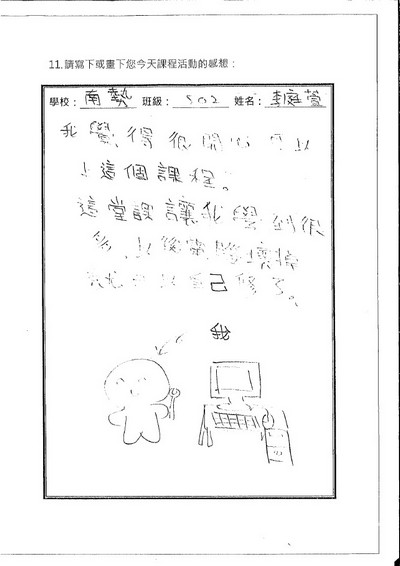 11.請寫下或畫下您今天課程活動的感想：
學校：南勢 班級：502 姓名：李庭萱
我覺得很開心可以
上這個課程。
這堂課讓我學到很
多，以後電腦壞掉
就可以自己修了。
我